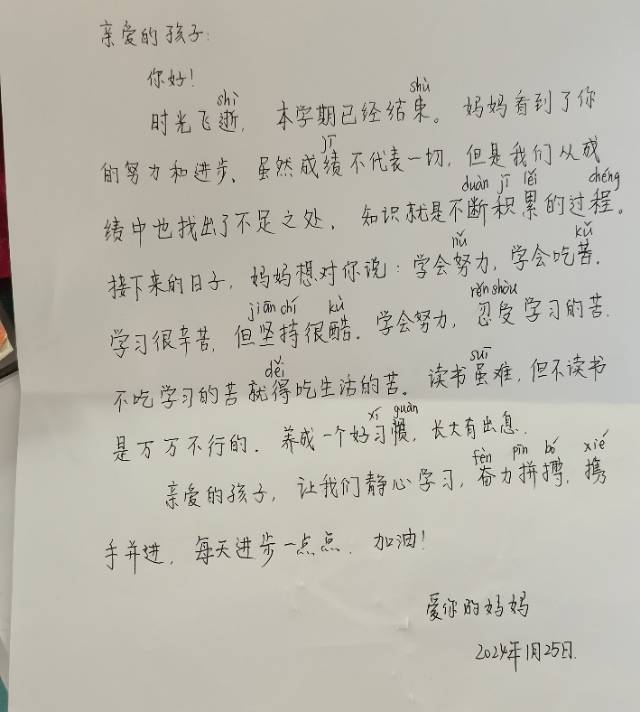 亲爱的孩子:
你好!
shì shù
时光飞逝, 本学期已经结束。妈妈看到了你
jī
的努力和进步、虽然成绩不代表一切, 但是我们从成
duàn jī lěi chéng
绩中也找出了不足之处, 知识就是不断积累的过程。
nǔ kǔ
接下来的日子, 妈妈想对你说: 学会努力, 学会吃苦.
jiān chí kù rěn shòu
学习很辛苦, 但坚持很酷. 学会努力, 忍受学习的苦.
děi suī
不吃学习的苦就得吃生活的苦。读书虽难, 但不读书
xí guàn
是万万不行的. 养成一个好习惯, 长大有出息.
fèn pīn bó xié
亲爱的孩子, 让我们静心学习, 奋力拼搏, 携
手并进, 每天进步一点点. 加油!
爱你的妈妈
2024年1月25日.